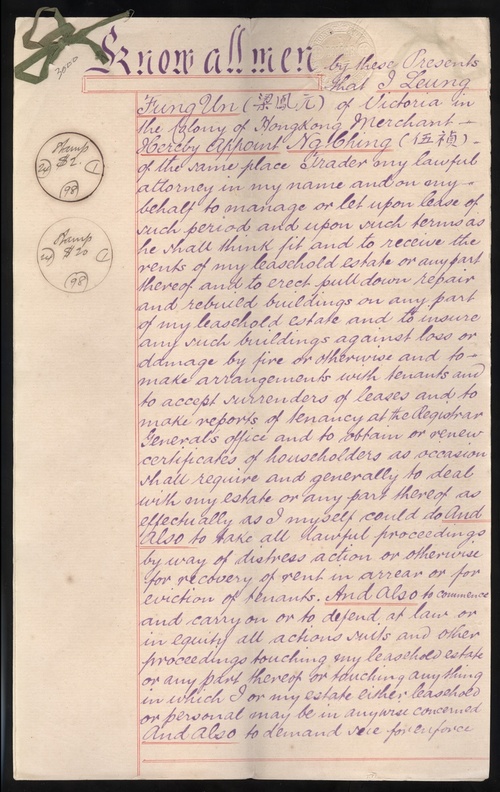 Know all men by these Presents
that I Leung
Fung Un (梁鳳元) of Victoria in
the Colony of Hongkong Merchant
Hereby Appoint Ng Ching (伍禎)
of the same place Trader my lawful
attorney in my name and on my
behalf to manage or let upon lease of
such period and upon such terms as
he shall think fit and to receive the
rents of my leasehold estate or any part
thereof and to erect pull down repair
and rebuild buildings on any part
of my leasehold estate and to insure
any such buildings against loss or
damage by fire or otherwise and to
make arrangements with tenants and
to accept surrenders of leases and to
make reports of tenancy at the Registrar
Generals office and to obtain or renew
certificates of householders as occasion
shall require and generally to deal
with my estate or any part thereof as
effectually as I myself could do And
Also to take all lawful proceedings
by way of distress action or otherwise
for recovery of rent in arrear or for
eviction of tenants. And Also to commence
and carry on or to defend at law or
in equity all actions suits and other
proceedings touching my leasehold estate
or any part thereof or touching anything
in which I or my estate either leasehold
or personal may be in anywise concerned
And Also to demand sue for enforce
3000
Stamp
$2
24 1
(98)
Stamp
$20
24 1
(98)